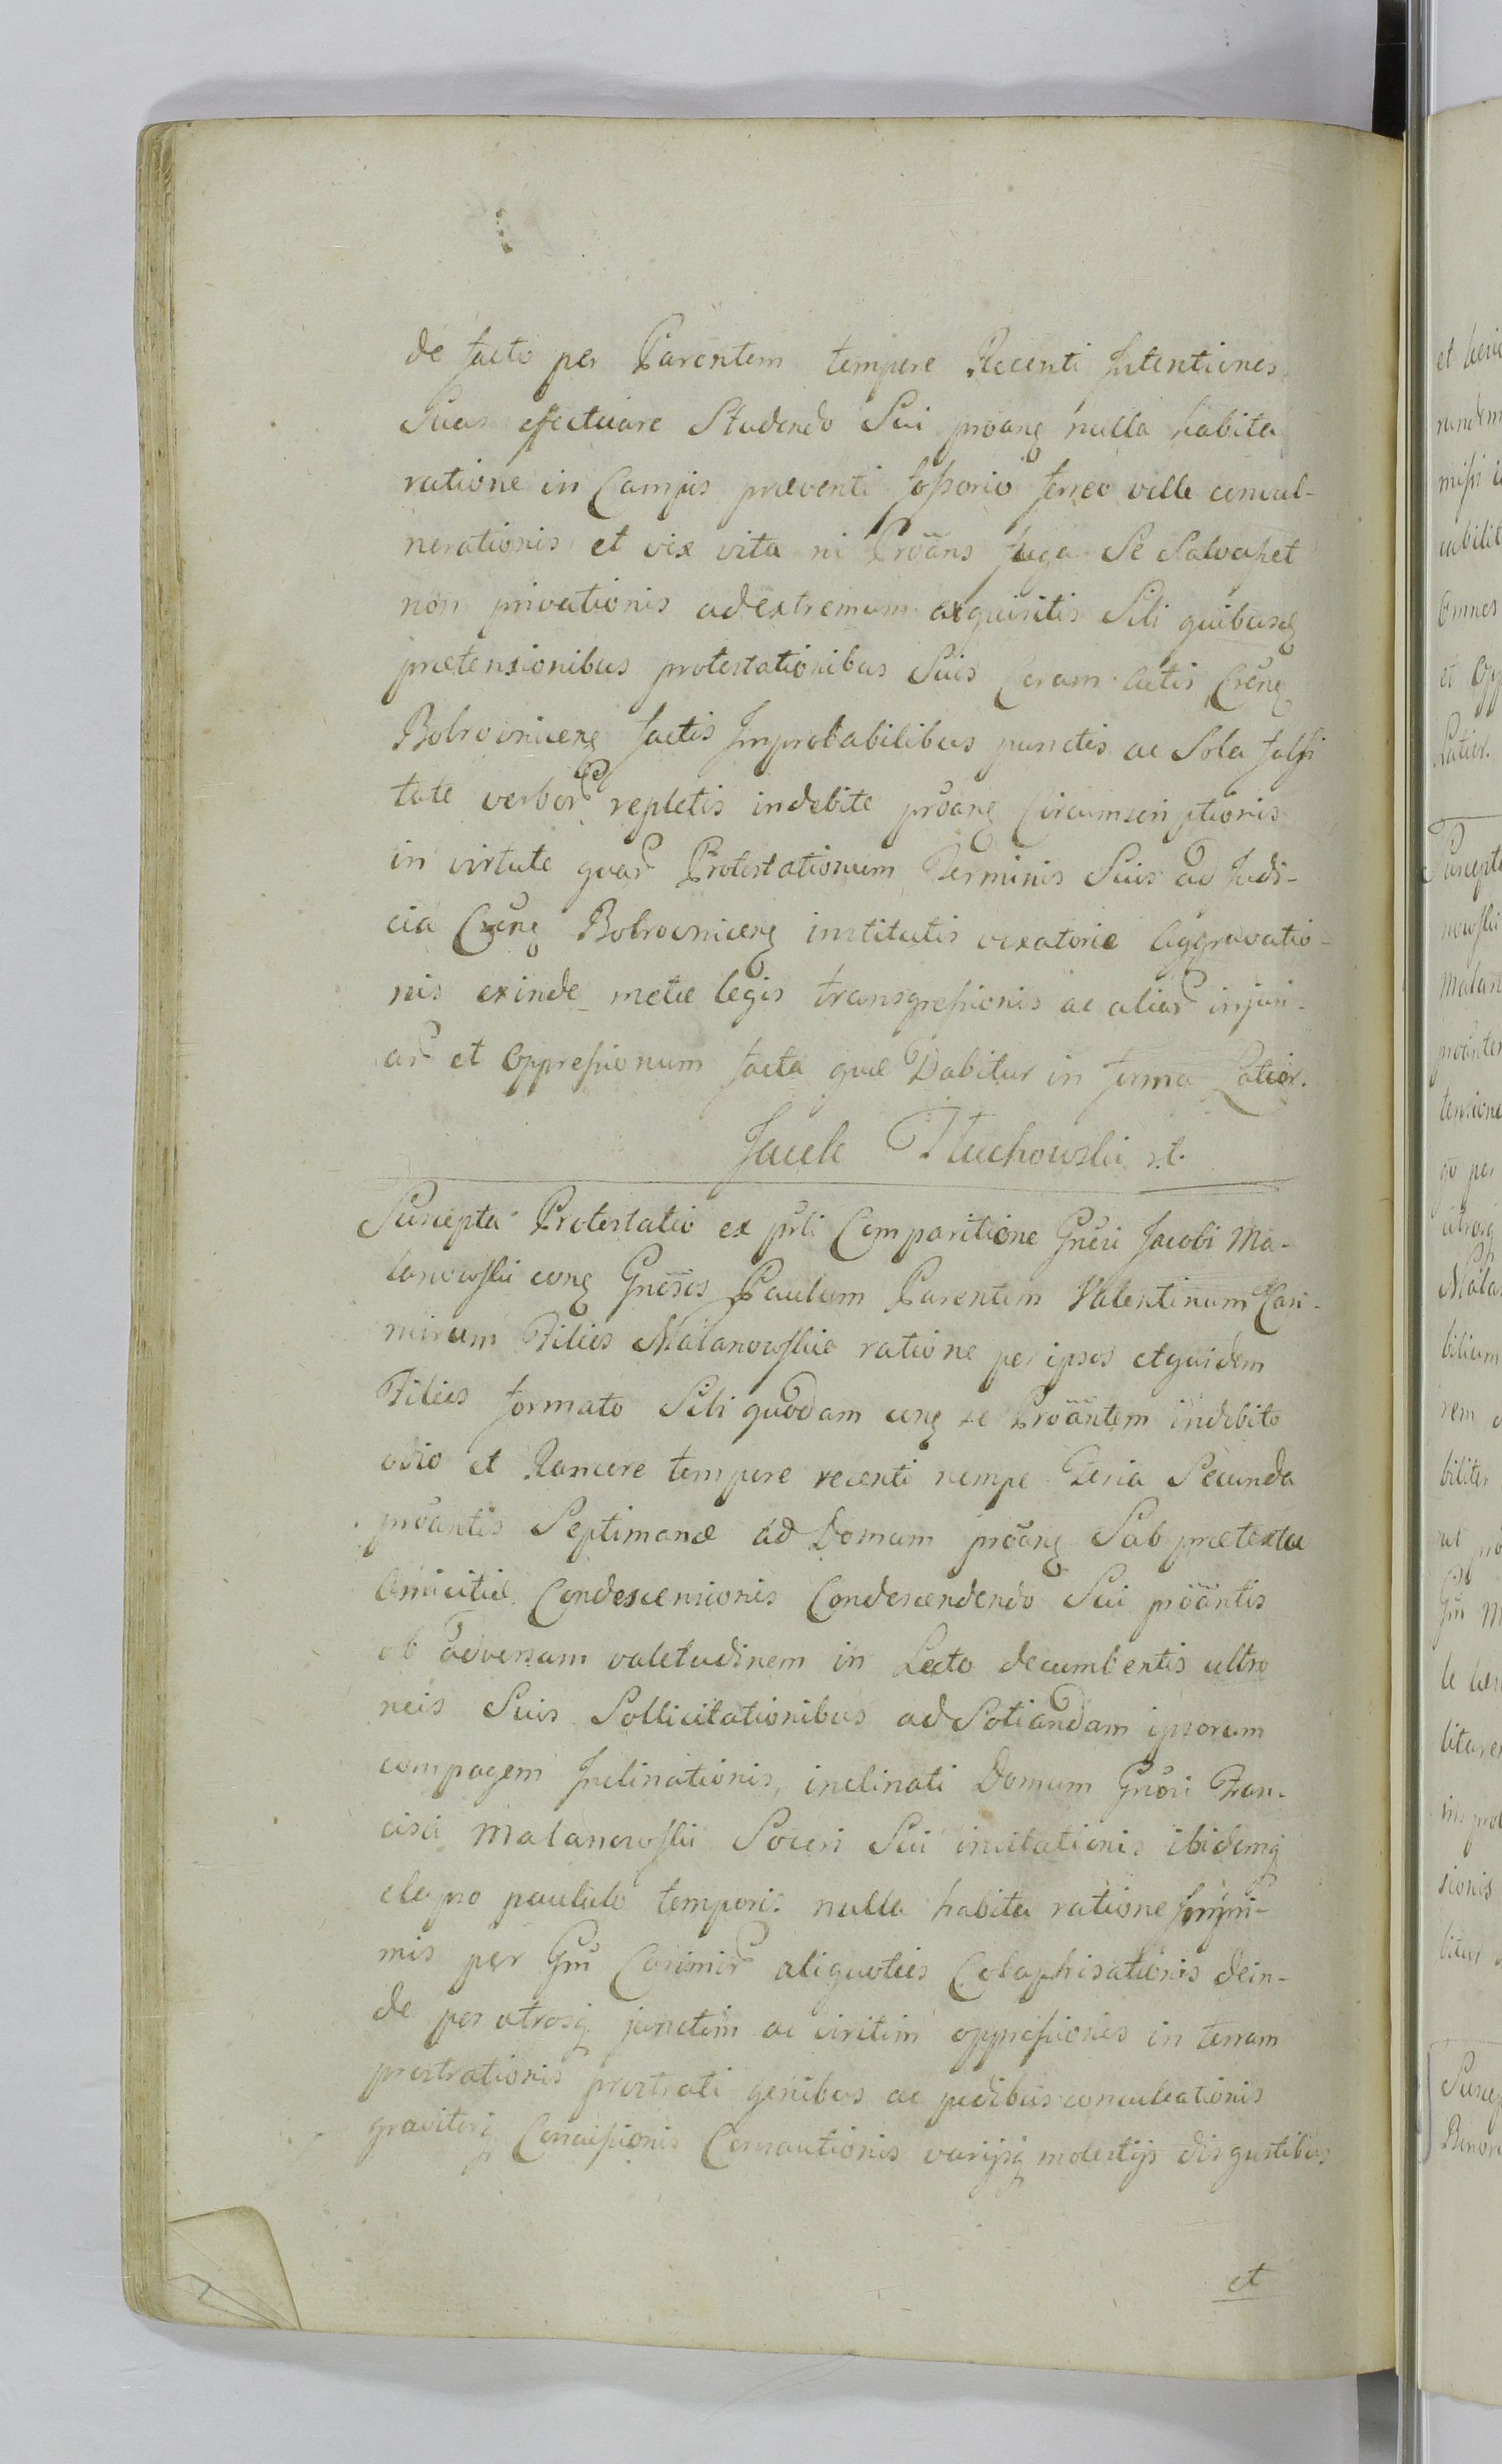 de facto per Parentem tempore Recenti Intentiones
Suas efectuare Studendo Sui prõang nulla habita
ratione in Campis præventi fossorio ferreo velle convul-
nerationis et vix vita ni Proãns fuga Se Salvasset
non privationis ad extremum exquisitis Sibi quibusq
prætensionibus protestationibus Suis Coram Actis
Bobrovniceng factis Improbabilibus punctis ac Sola falsi
tate verbor repletis indebite prõang Circumscriptionis
in virtute quar Protestationum Terminis Suis ad Judi-
cia Bobrovniceng institutis vexatoriæ Aggravatio-
nis exinde metæ legis transgressionis ac aliar injuri-
ar et Oppressionum facta quæ Dabitur in forma Latior.
Jacek Tluchowski
Suscepta Protestatio ex Comparitione Gnõsi Jacobi Ma-
lanowski cong Gnõsos Paulum Parentem Valentinum Casi-
mirum Filios Malanowskie ratione per ipsos etquidem
Filios formato Sibi quodam cong se Proãntem indebito
odio et Rancore tempore recenti nempe Feria Secunda
proãntis Septimanæ ad Domum proãng Sub prætextu
Amicitiæ Condescensionis Condescendendo Sui proãntis
ob adversam valetudinem in Lecto decumbentis ultro
neis Suis Sollicitationibus ad Sotiandam ipsorum
compagem Inclinationis, inclinati Domum Gnõsi Fran-
cisci Malanowski Soceri Sui invitationis ibidemq
elapso paululo temporis nulla habita ratione
mis per Casimir aliquoties Colaphisationis dein-
de per utrosq junctim ac viritim oppressionis in terram
prostrationis prostrati genibus ac pedibus conculcationis
graviterq Concussionis variisq molestijs disgustibus
et